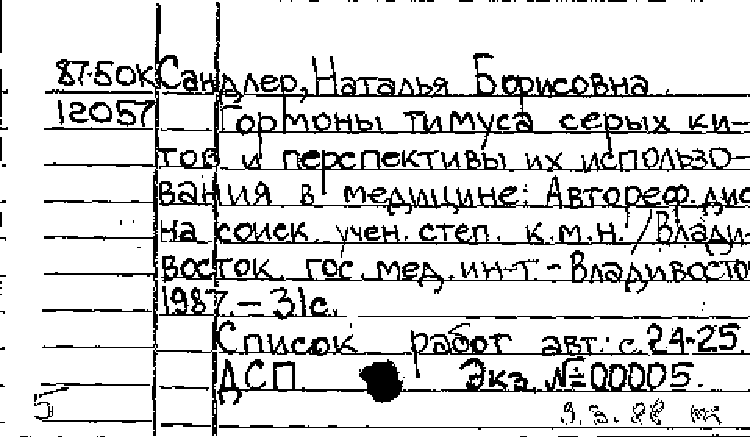 87-50К Сандлер, Наталья Борисовна.
12057 Гормоны тимуса серых ки-
тов и перспективы их использо-
вания в медицине: Автореф. дис
на соиск. учен. степ. к.м.н. / Влади-
восток. гос. мед. ин-т. - Владивосто
1987. - 31 с.
Список работ авт.: с. 24-25.
ДСП Экз. № 00005.
5